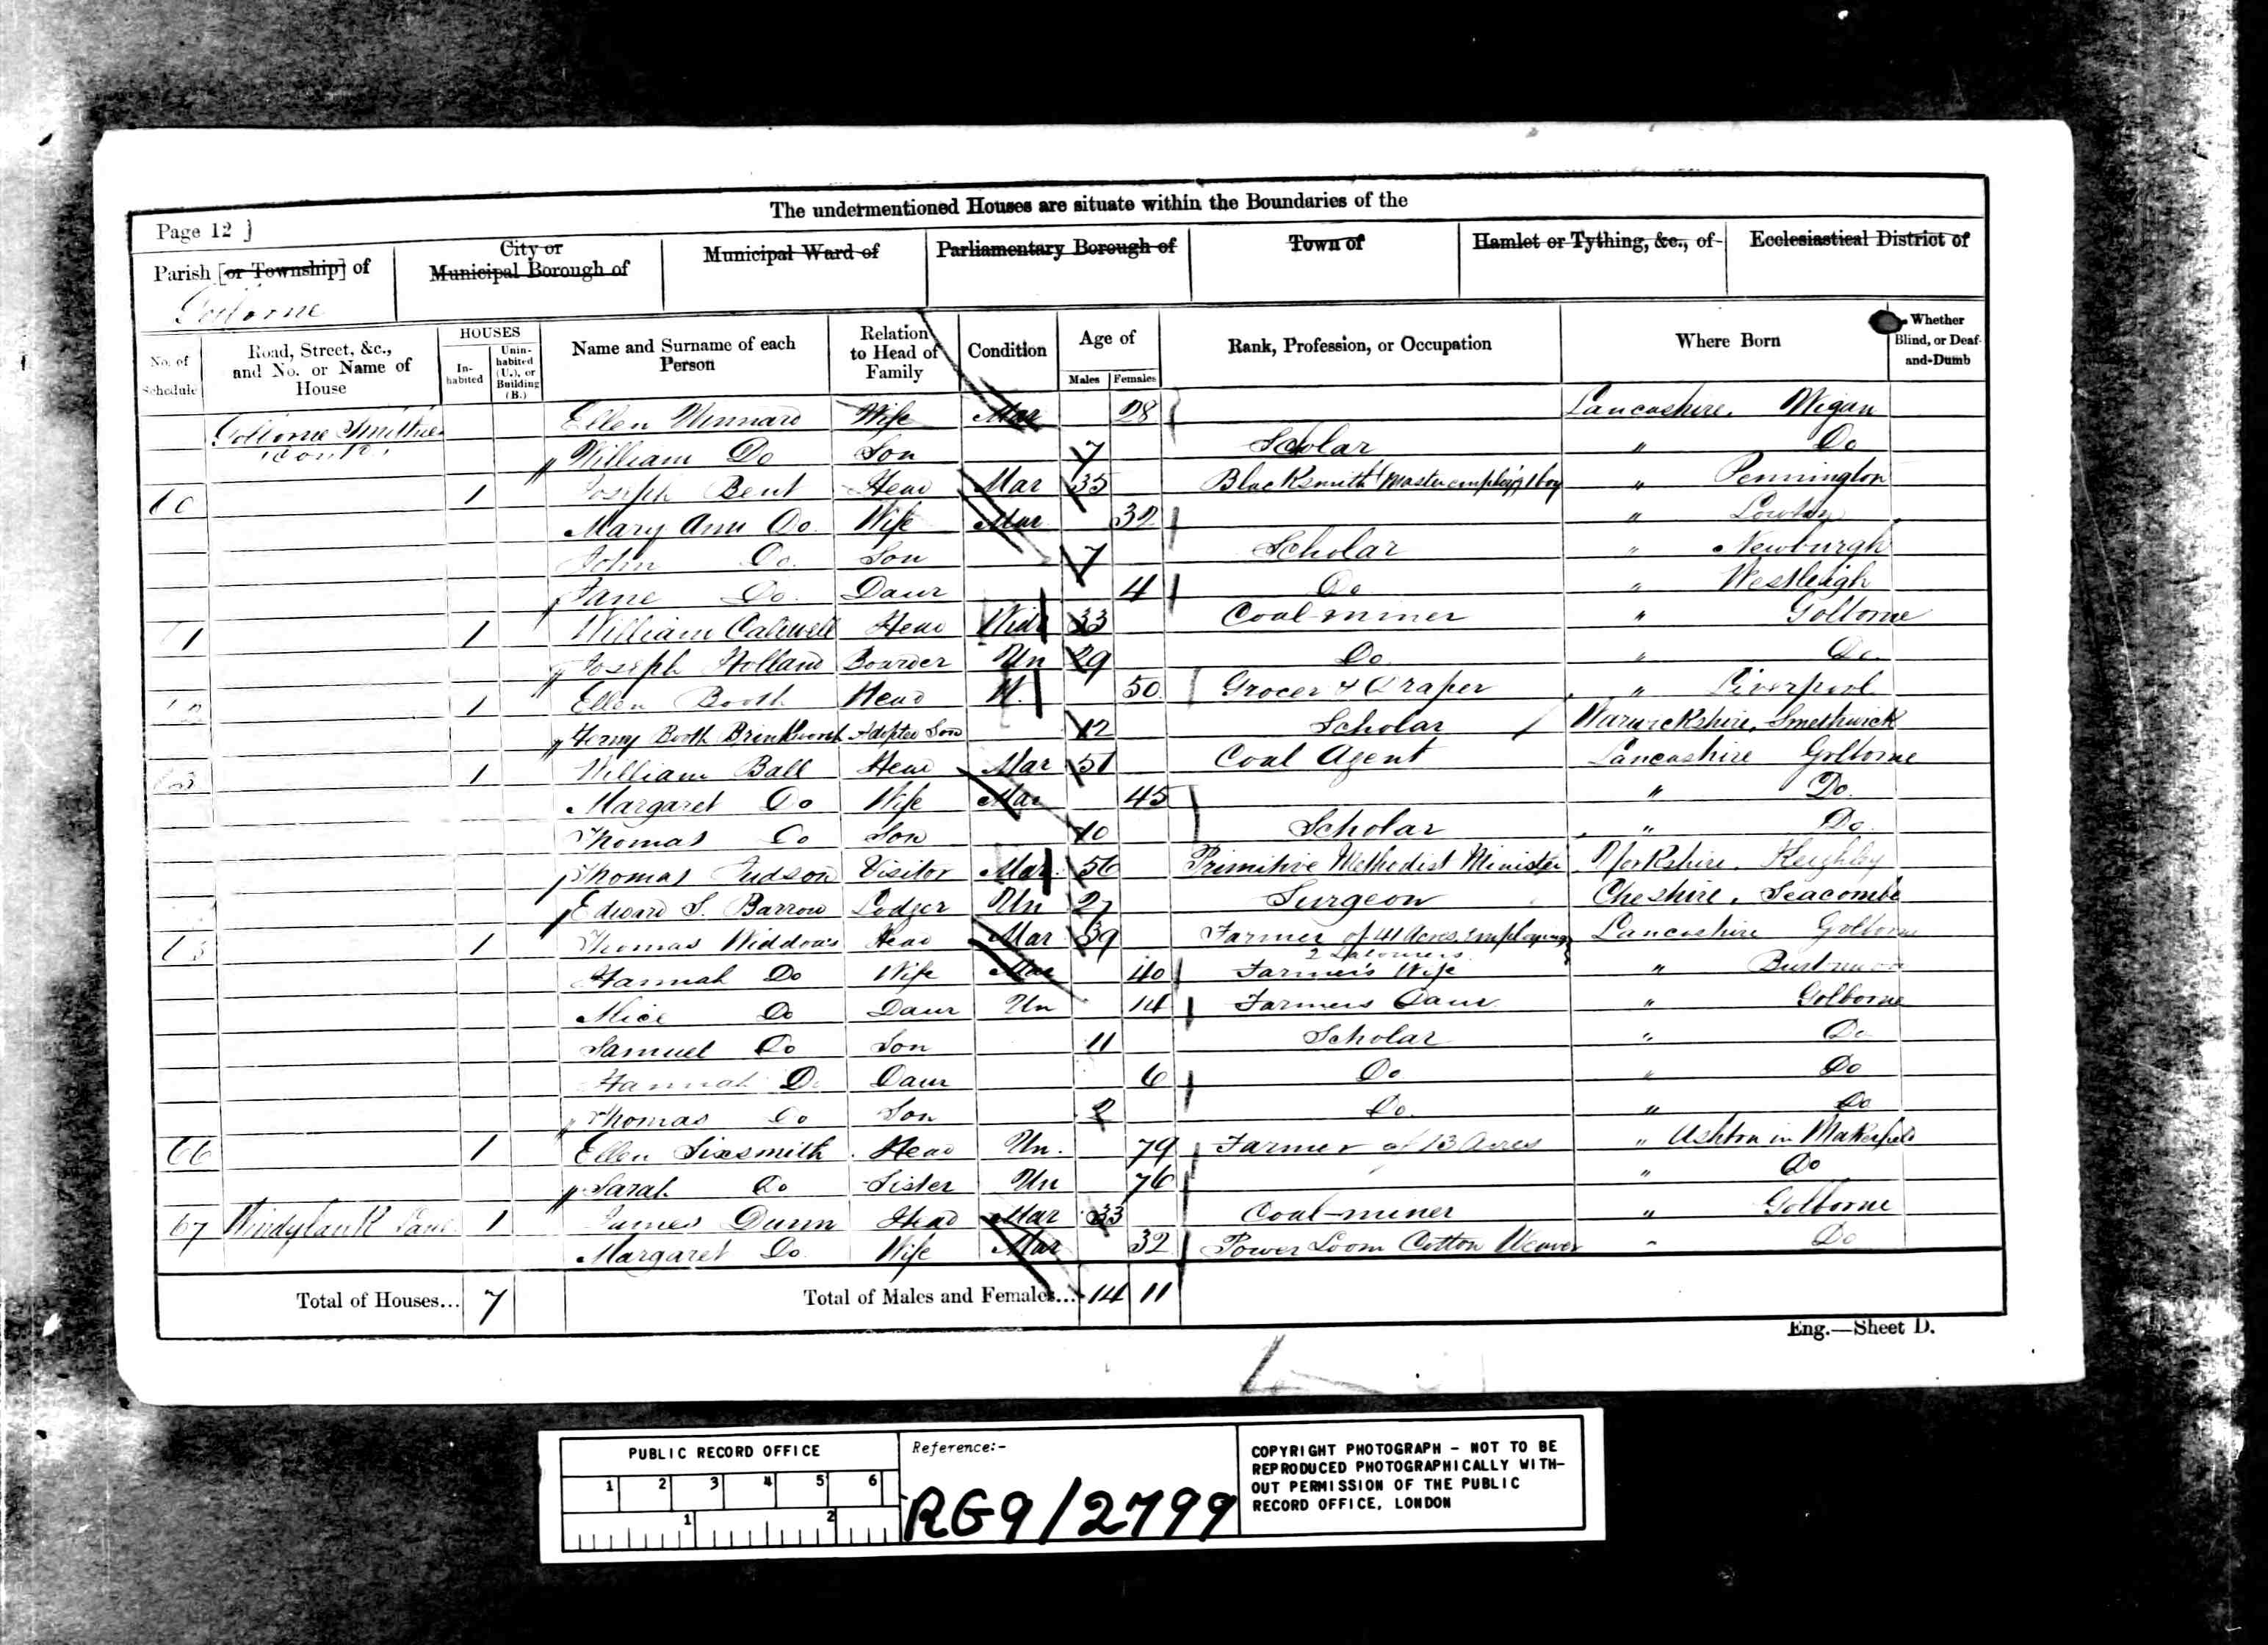 The undermentioned Houses are situate within the Boundaries of the
Page 12 ]
Parish [or Township] of
City or Municipal Borough of
Municipal Ward of
Parliamentary Borough of
Town of
Hamlet or Tything, &c., of
Ecclesiastical District of
Golborne
No. of Schedule
Road, Street, &c., and No. or Name of House
HOUSES
In-habited
Unin-habited (U.), or Building (B.)
Name and Surname of each Person
Relation to Head of Family
Condition
Age of
Males
Females
Rank, Profession, or Occupation
Where Born
Whether Blind, or Deaf-and-Dumb
Golborne Smithies Ellen Winnard Wife Mar 28 Lancashire. Wigan
William Do Son 7 Scholar " Do
1 Joseph Bent Head Mar 35 Blacksmith Master employing 1 boy " Pennington
Mary Ann Do. Wife Mar 32 " Lowton
John Do. Son 7 Scholar " Newburgh
Jane Do. Daur 4 Do " Westleigh
1 William Calwell Head Widr 33 Coal-miner " Golborne
Joseph Holland Boarder Un 29 Do " Do.
1 Ellen Booth Head W. 50 Grocer & Draper " Liverpool
Henry Booth Adopted Son 12 Scholar Warwickshire, Smethwick
1 William Ball Head Mar 51 Coal Agent Lancashire Golborne
Margaret Do Wife Mar 45 " Do.
Thomas Do Son 10 Scholar " Do
Thomas Judson Visitor Mar 56 Primitive Methodist Minister Yorkshire. Keighley
Edward S. Barrow Lodger Un 27 Surgeon Cheshire, Seacombe
1 Thomas Widdows Head Mar 39 Farmer of 41 Acres, Employing Lancashire Golborne
2 Labourers
Hannah Do Wife Mar 40 Farmer's Wife "
Alice Do Daur Un 14 Farmers Daur " Golborne
Samuel Do Son 11 Scholar " Do
Hannah Do Daur 6 Do " Do
Thomas Do Son 2 Do. " Do
66 1 Ellen Sixsmith Head Un. 79 Farmer of 13 Acres " Ashton in Makerfield
Sarah Do Sister Un 76 " Do
67 Windybank Lane 1 James Dunn Head Mar 33 Coal-miner " Golborne
Margaret Do. Wife Mar 32 Power Loom Cotton Weaver " Do
Total of Houses... 7 Total of Males and Females... 14 11
Eng.—Sheet D.
PUBLIC RECORD OFFICE
1 2 3 4 5 6
1 2
Reference:-
RG9/2799
COPYRIGHT PHOTOGRAPH - NOT TO BE
REPRODUCED PHOTOGRAPHICALLY WITH-
OUT PERMISSION OF THE PUBLIC
RECORD OFFICE, LONDON